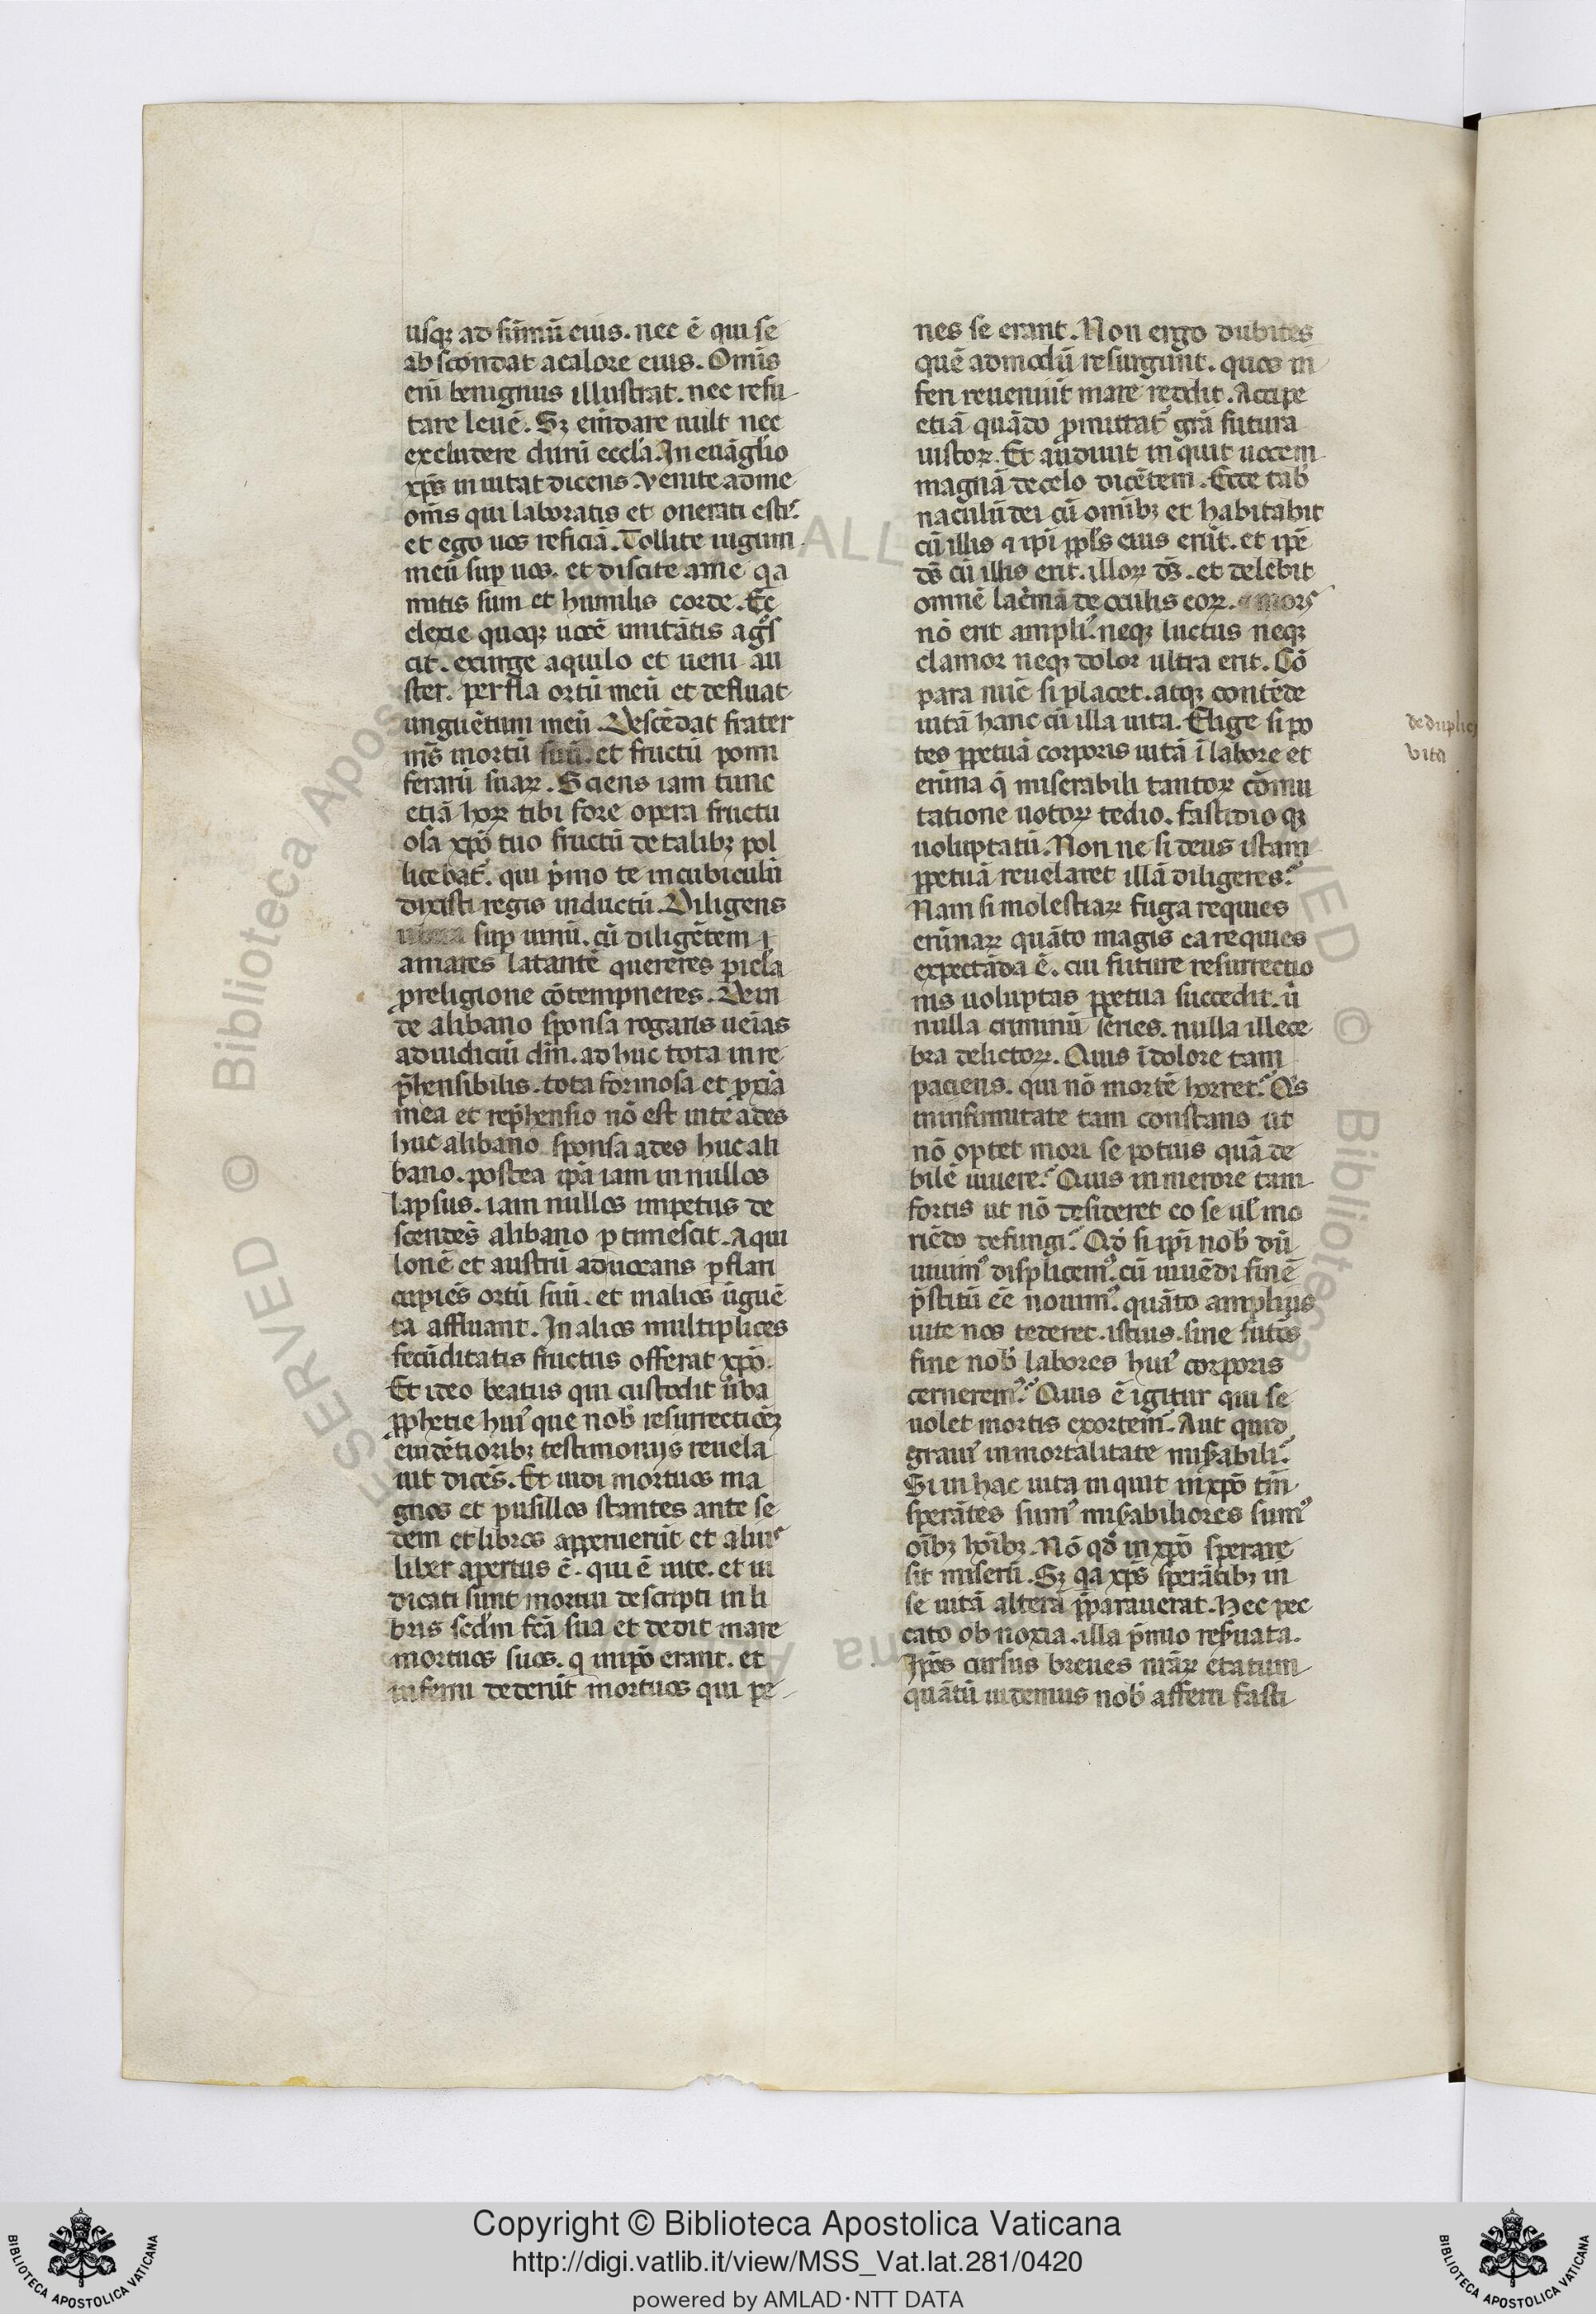 usqꝫ ad sūmū eius. nec ē qui se
abscondat a calore eius. Omīs
eni᷎ benignus illustrat. nec refu
tare leuē. Sꝫ emdare uult nec
excludere dimi᷎ eccl̄a. In euāglio
xp̄s inuitat dicens. Venite ad me
om̄s qui laboratis et onerati estꝭ.
et ego uos reficiā. Tollite iugum
meū sup uos. et discite a me qa
mitis sum et humilis corde. Ec
clexie quoqꝫ uocē imitātis aḡs
cit. exurge aquilo et ueni au
ster. perfla ortū meū et defluat
unguētum meū. Descēdat frater
m̄s mortū suū. et fructū pomi
ferarū suaꝝ. Sciens iam tunc
etiā hoꝝ tibi fore opera fructu
osa xp̄o tuo fructū de talibꝫ pol
licebat᷒. qui pͥmo te in cubiculū
dixisti regis inductū. Diligens
sup uinū. cū diligētem
amares latantē quereres picl̄a
p religione cōtempneres. Dein
de a libano sponsa rogaris ueīas
ad iudiciū dīn. ad huc tota in re
p̄hensibilis. tota formosa et p̱xiā
mea et rep̄hensio nō est in te ades
huc a libano sponsa ades huc a li
bano. postea ip̄a iam in nullos
lapsus. iam nullos impetus de
scendēs a libano ptimescit. Aqui
lonē et austrū aduocans pflari
cupiēs ortū suū. et in alios ūguē
ta affluant. In alios multiplices
fecūditatis fructus offerat xp̄o.
Et ideo beatus qui custodit ūba
ꝓphetie hui᷒ que nob̄ resurrectiōꝫ
euidētioribꝫ testimonijs reuela
uit dicēs. Et uidi mortuos ma
gnos et pusillos stantes ante se
dem et libros apperuerūt et alius
liber apertus ē. qui ē uite. et iu
dicati sunt mortui descripti in li
bris scd̄m fc̄ā sua et dedit mare
mortuos suos. q in ip̄o erant. et
inferni dederūt mortuos qui pe
nes se erant. Non ergo dubites
quē admodū resurgunt. quos in
feri reuemūt mare reddit. Accipe
etiā quādo ꝓmittat᷒ grā futura
iustoꝝ. Et audiuit inquit uocem
magnā de celo dicētem. Ecce tab̄
naculū dei cū omībꝫ et habitabit
cū illis ⁊ ip̄i ppl̄s eius erūt. et ip̄e
ds̄ cū illis erit. illoꝝ ds̄. et delebit
omnē lacͥmā de oculis eoꝝ. ⁊ mors
nō erit ampli᷒. neqꝫ luctus neqꝫ
clamor neqꝫ dolor ultra erit. Cō
para nūc si placet. atqꝫ contēde
uitā hanc cū illa uita. Elige si po
tes ppetuā corporis uitā ī labore et
erūna q̄ miserabili tantoꝝ cōmu
tatione uotoꝝ tedio. fastidio qꝫ
uoluptatū. Non ne si deus istam
ppetuā reuelaret illā diligeres.
Nam si molestiaꝝ fuga requies
erūnaꝝ quāto magis ea requies
expectāda ē. cui future resurrectio
nis uoluptas ppetua succedit. ū
nulla criminū series. nulla illece
bra delictoꝝ. Quis ī dolore tam
paciens. qui nō mortē horret. Qͥs
in infirmitate tam constans ut
nō optet mori se potius quā de
bilē uiuere. Quis in merore tam
fortis ut nō desideret eo se ul̄ mo
riēdo defungi. Qd̄ si ip̄i nob̄ dū
uiuim᷒ displicem᷒. cū uiuēdi finē
p̄stitū eē nouim᷒. quāto amplius
uite nos tederet. istius. sine
fine nob̄ labores hui᷒ corporis
cernerem᷒. Quis ē igitur qui se
uolet mortis exortem. Aut quid
graui᷒ in mortalitate misabili.
Si in hac uita inquit in xp̄o tm̄
sperātes sum᷒ misabiliores sum᷒
oībꝫ hoībꝫ. Nō qd̄ in xp̄o sperare
sit miserū. Sꝫ qa xp̄s sperātibꝫ in
se uitā alterā p̄parauerat. Hec pec
cato obnoxia. illa pͥmio resuata.
Ip̄os cursus breues nr̄aꝝ etatum
quātū uidemus nob̄ afferri fasti
de duplici
vita
Copyright © Biblioteca Apostolica Vaticana
http://digi.vatlib.it/view/MSS_Vat.lat.281/0420
powered by AMLAD·NTT DATA
BIBLIOTECA APOSTOLICA VATICANA
BIBLIOTECA APOSTOLICA VATICANA